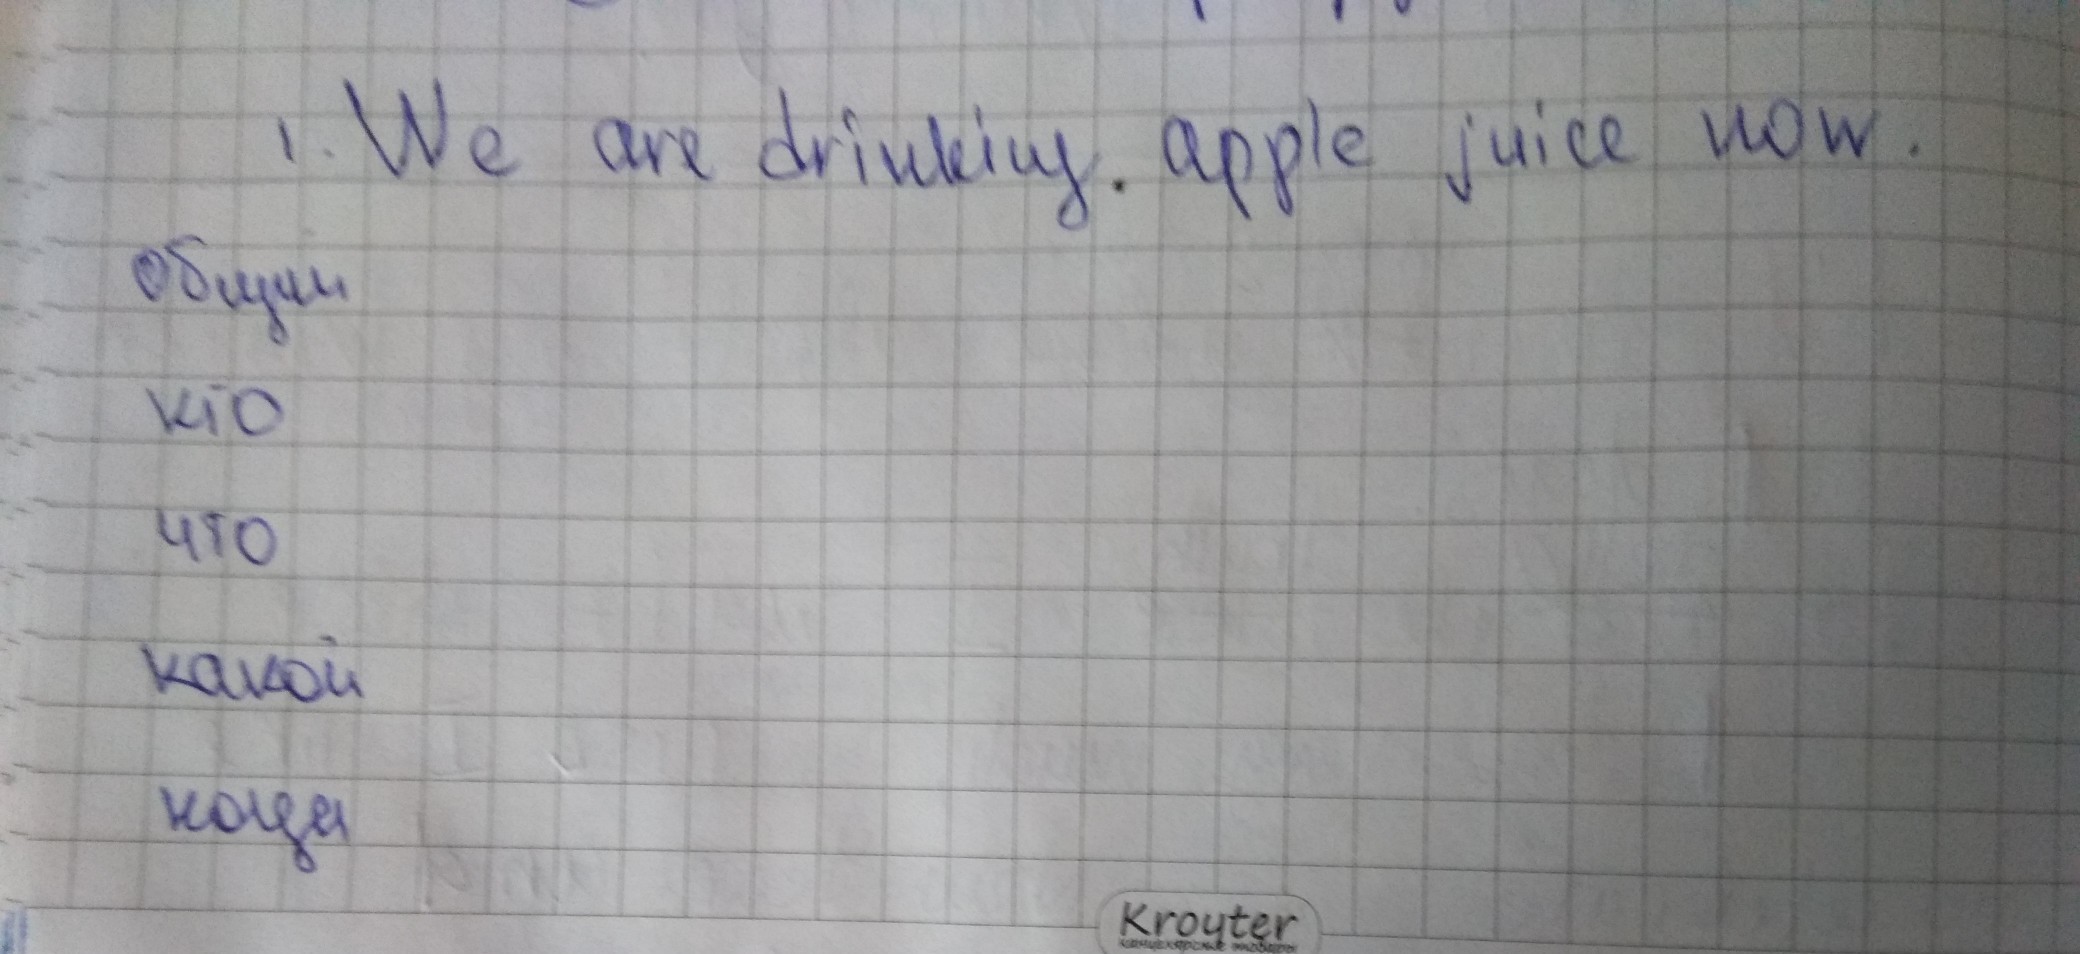 1. We are drinking. apple juice now.
общий
кто
что
какой
когда
Krouter
канцелярские товары